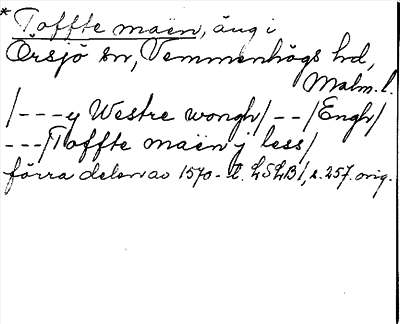 * Toffte maen, äng i
Örsjö sn, Vemmenhögs hd,
Malm. l.
/---y Westre wongh/--/Engh/
---/Toffte maen j less/
förra delen av 1570-t. LSLB 1, s. 257. orig.